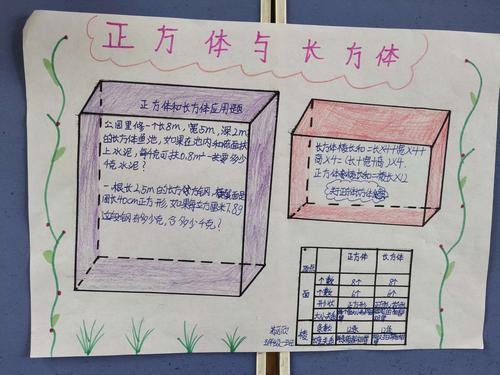 正方体与长方体
正方体和长方体应用题
公园里修一个长8m，宽5m，深2m
的长方体鱼池，如果在池内和底面抹
上水泥，每千克可抹0.8m² 一共要多少
千克水泥？
一根长2.5m的长方体方钢，横截面是
周长40cm正方形，如果每立方厘米7.8g
这段钢有多少克，合多少千克？
长方体棱长和=长×4+宽×4+
高×4=(长+宽+高)×4.
正方体棱长和=棱长×12
正方体 长方体
个数 8个 8个
面 个数 6个 6个
形状 正方形
大小关系
棱 条数 12条 12条
长度关系